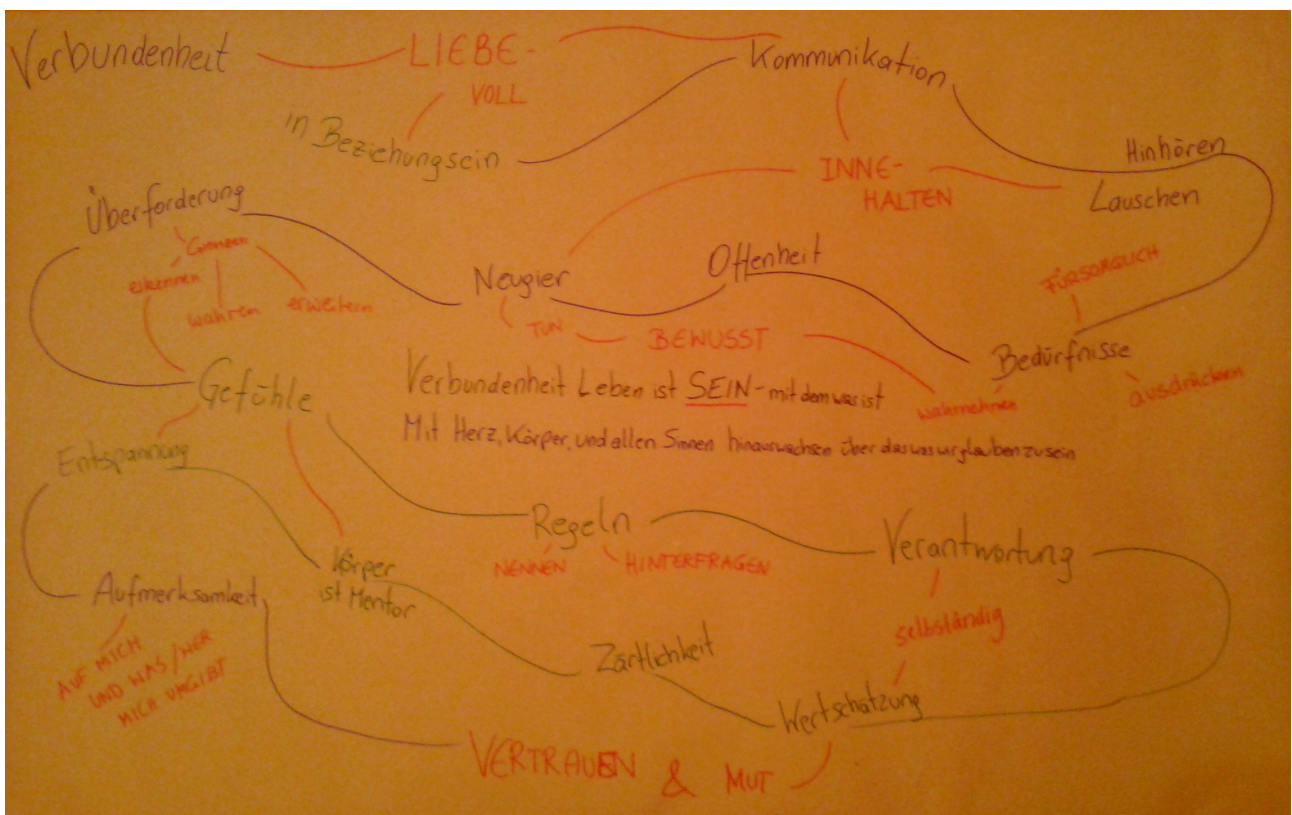 Verbundenheit
LIEBE-
VOLL
Kommunikation
in Beziehungsein
INNE-
HALTEN
Hinhören
Lauschen
Überforderung
Grenzen
erkennen
wahren
erweitern
Neugier
TUN
BEWUSST
Offenheit
FÜRSORGLICH
Bedürfnisse
wahrnehmen
ausdrücken
Gefühle
Verbundenheit Leben ist SEIN - mit dem was ist
Mit Herz, Körper, und allen Sinnen hinauswachsen über das was wir glauben zu sein
Entspannung
Regeln
NENNEN
HINTERFRAGEN
Verantwortung
selbständig
Körper
ist Mentor
Aufmerksamkeit
AUF MICH
UND WAS/WER
MICH UMGIBT
Zärtlichkeit
Wertschätzung
VERTRAUEN & MUT